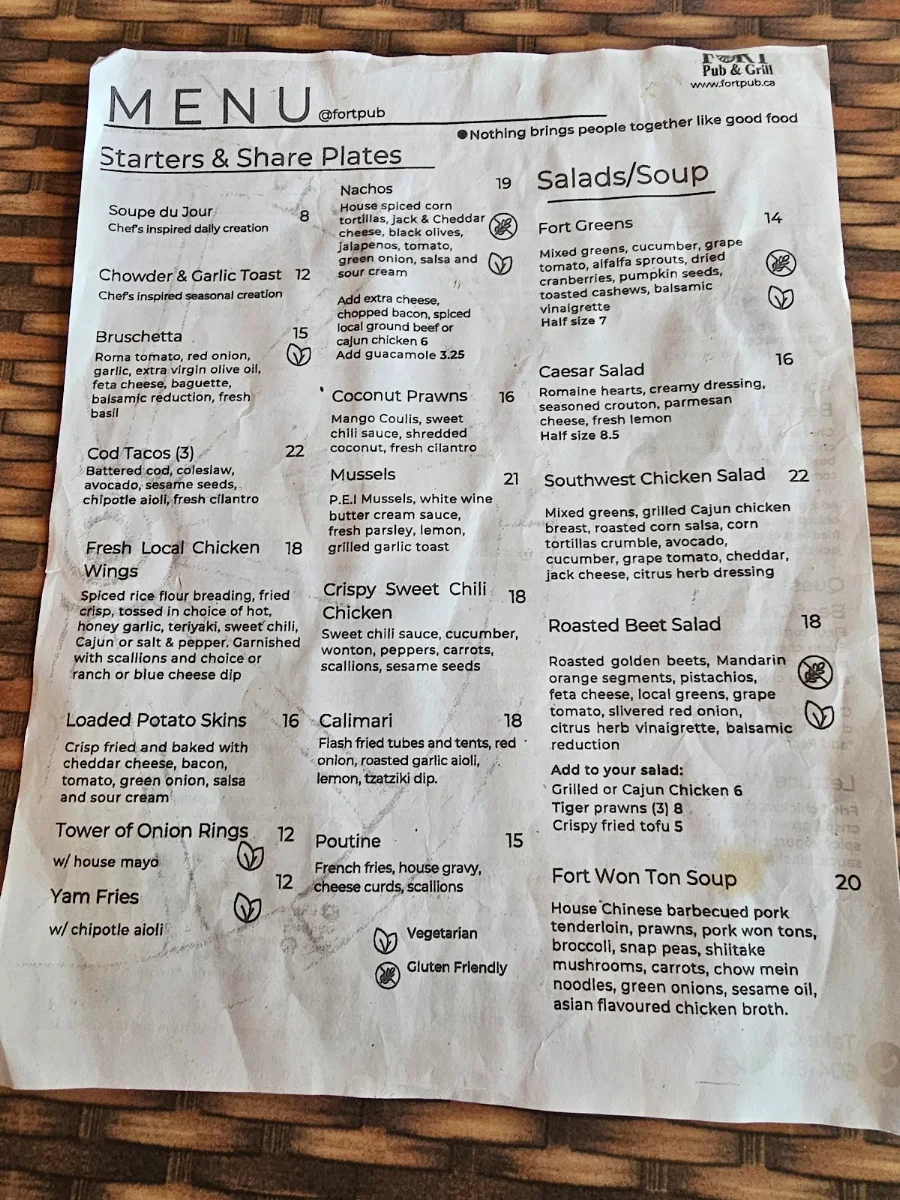 FORT
Pub & Grill
www.fortpub.ca
MENU
@fortpub
●Nothing brings people together like good food
Starters & Share Plates
Soupe du Jour 8
Chef's inspired daily creation
Chowder & Garlic Toast 12
Chef's inspired seasonal creation
Bruschetta 15
Roma tomato, red onion,
garlic, extra virgin olive oil,
feta cheese, baguette,
balsamic reduction, fresh
basil
Cod Tacos (3) 22
Battered cod, coleslaw,
avocado, sesame seeds,
chipotle aioli, fresh cilantro
Fresh Local Chicken 18
Wings
Spiced rice flour breading, fried
crisp, tossed in choice of hot,
honey garlic, teriyaki, sweet chili,
Cajun or salt & pepper. Garnished
with scallions and choice or
ranch or blue cheese dip
Loaded Potato Skins 16
Crisp fried and baked with
cheddar cheese, bacon,
tomato, green onion, salsa
and sour cream
Tower of Onion Rings 12
w/ house mayo
Yam Fries 12
w/ chipotle aioli
Nachos 19
House spiced corn
tortillas, jack & Cheddar
cheese, black olives,
jalapenos, tomato,
green onion, salsa and
sour cream
Add extra cheese,
chopped bacon, spiced
local ground beef or
cajun chicken 6
Add guacamole 3.25
Coconut Prawns 16
Mango Coulis, sweet
chili sauce, shredded
coconut, fresh cilantro
Mussels 21
P.E.I Mussels, white wine
butter cream sauce,
fresh parsley, lemon,
grilled garlic toast
Crispy Sweet Chili 18
Chicken
Sweet chili sauce, cucumber,
wonton, peppers, carrots,
scallions, sesame seeds
Calimari 18
Flash fried tubes and tents, red
onion, roasted garlic aioli,
lemon, tzatziki dip.
Poutine 15
French fries, house gravy,
cheese curds, scallions
Vegetarian
Gluten Friendly
Salads/Soup
Fort Greens 14
Mixed greens, cucumber, grape
tomato, alfalfa sprouts, dried
cranberries, pumpkin seeds,
toasted cashews, balsamic
vinaigrette
Half size 7
Caesar Salad 16
Romaine hearts, creamy dressing,
seasoned crouton, parmesan
cheese, fresh lemon
Half size 8.5
Southwest Chicken Salad 22
Mixed greens, grilled Cajun chicken
breast, roasted corn salsa, corn
tortillas crumble, avocado,
cucumber, grape tomato, cheddar,
jack cheese, citrus herb dressing
Roasted Beet Salad 18
Roasted golden beets, Mandarin
orange segments, pistachios,
feta cheese, local greens, grape
tomato, slivered red onion,
citrus herb vinaigrette, balsamic
reduction
Add to your salad:
Grilled or Cajun Chicken 6
Tiger prawns (3) 8
Crispy fried tofu 5
Fort Won Ton Soup 20
House Chinese barbecued pork
tenderloin, prawns, pork won tons,
broccoli, snap peas, shiitake
mushrooms, carrots, chow mein
noodles, green onions, sesame oil,
asian flavoured chicken broth.